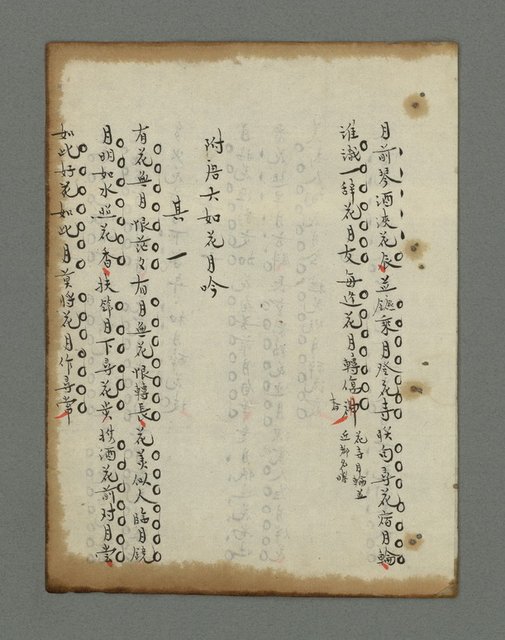 月前琴酒淡花辰並鑣乘月登花寺联句尋花宿月輪
誰識一辞花月友每逢花月轉傷神
花寺月輪並
近郡名勝
附唐六如花月吟
其一
有花無月恨茫々有月無花恨轉長花美似人臨月鏡
月明如水照花香扶筇月下尋花步携酒花前对月嘗
如此好花如此月莫將花月作尋常